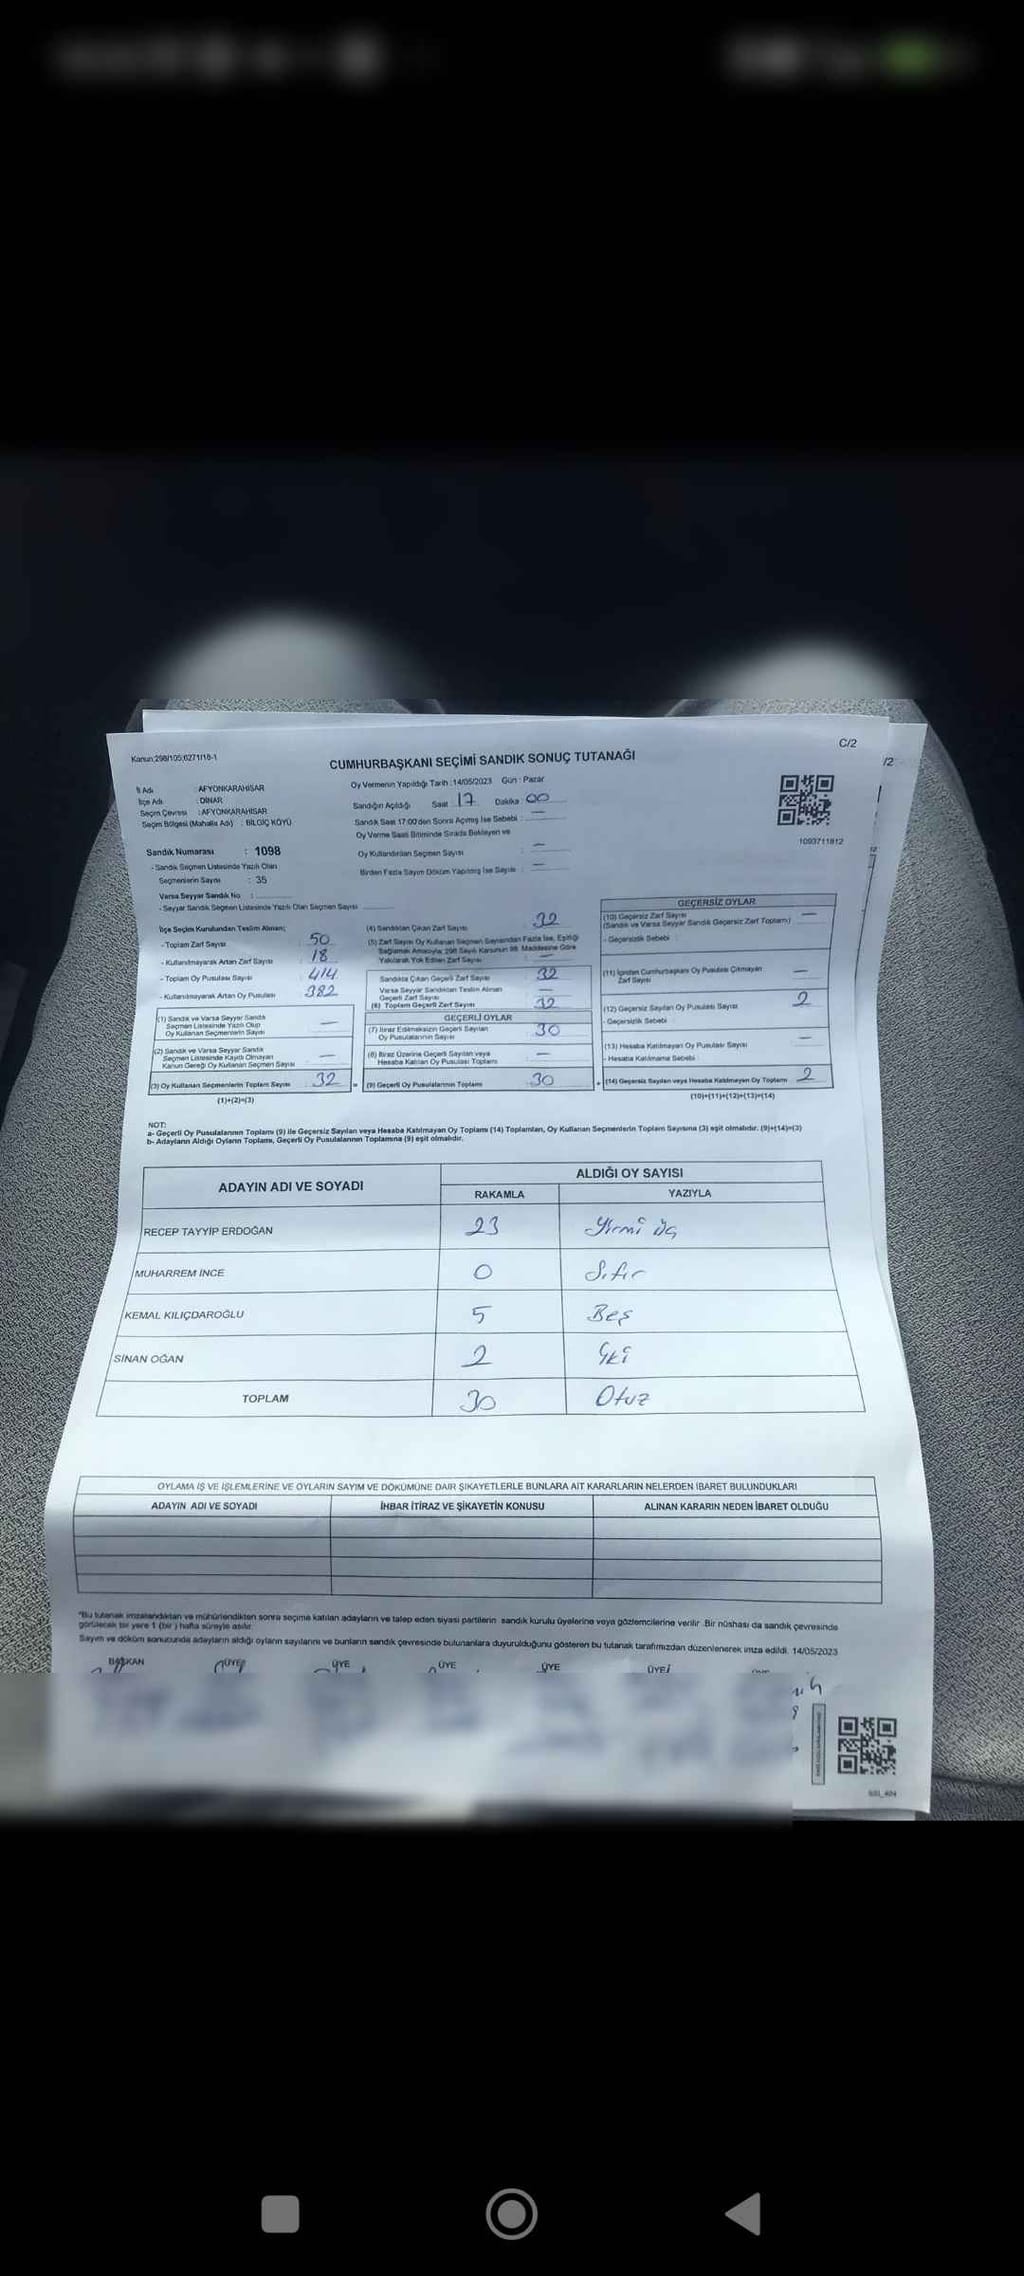 C/2
/2
Kanun:298/105;6271/18-1
CUMHURBAŞKANI SEÇİMİ SANDIK SONUÇ TUTANAĞI
İl Adı : AFYONKARAHİSAR
İlçe Adı : DİNAR
Seçim Çevresi : AFYONKARAHİSAR
Seçim Bölgesi (Mahalle Adı) : BİLGİÇ KÖYÜ
Oy Vermenin Yapıldığı Tarih : 14/05/2023 Gün : Pazar
Sandığın Açıldığı Saat 17 Dakika 00
Sandık Saat 17:00'den Sonra Açılmış İse Sebebi : —
Oy Verme Saati Bitiminde Sırada Bekleyen ve
Oy Kullandırılan Seçmen Sayısı : —
Birden Fazla Sayım Döküm Yapılmış İse Sayısı : —
1093711812
Sandık Numarası : 1098
- Sandık Seçmen Listesinde Yazılı Olan
Seçmenlerin Sayısı : 35
Varsa Seyyar Sandık No :
- Seyyar Sandık Seçmen Listesinde Yazılı Olan Seçmen Sayısı
İlçe Seçim Kurulundan Teslim Alınan;
- Toplam Zarf Sayısı 50
- Kullanılmayarak Artan Zarf Sayısı 18
- Toplam Oy Pusulası Sayısı 414
- Kullanılmayarak Artan Oy Pusulası 382
(1) Sandık ve Varsa Seyyar Sandık
Seçmen Listesinde Yazılı Olup
Oy Kullanan Seçmenlerin Sayısı —
(2) Sandık ve Varsa Seyyar Sandık
Seçmen Listesinde Kayıtlı Olmayan
Kanun Gereği Oy Kullanan Seçmen Sayısı —
(3) Oy Kullanan Seçmenlerin Toplam Sayısı 32
(1)+(2)=(3)
(4) Sandıktan Çıkan Zarf Sayısı 32
(5) Zarf Sayısı Oy Kullanan Seçmen Sayısından Fazla İse, Eşitliği
Sağlamak Amacıyla; 298 Sayılı Kanunun 98. Maddesine Göre
Yakılarak Yok Edilen Zarf Sayısı —
Sandıkta Çıkan Geçerli Zarf Sayısı 32
Varsa Seyyar Sandıktan Teslim Alınan
Geçerli Zarf Sayısı —
(6) Toplam Geçerli Zarf Sayısı 32
GEÇERLİ OYLAR
(7) İtiraz Edilmeksizin Geçerli Sayılan
Oy Pusulalarının Sayısı 30
(8) İtiraz Üzerine Geçerli Sayılan veya
Hesaba Katılan Oy Pusulası Toplamı —
= (9) Geçerli Oy Pusulalarının Toplamı 30
GEÇERSİZ OYLAR
(10) Geçersiz Zarf Sayısı —
(Sandık ve Varsa Seyyar Sandık Geçersiz Zarf Toplamı)
- Geçersizlik Sebebi :
(11) İçinden Cumhurbaşkanı Oy Pusulası Çıkmayan
Zarf Sayısı —
(12) Geçersiz Sayılan Oy Pusulası Sayısı 2
- Geçersizlik Sebebi :
(13) Hesaba Katılmayan Oy Pusulası Sayısı —
- Hesaba Katılmama Sebebi :
+ (14) Geçersiz Sayılan veya Hesaba Katılmayan Oy Toplamı 2
(10)+(11)+(12)+(13)=(14)
NOT:
a- Geçerli Oy Pusulalarının Toplamı (9) ile Geçersiz Sayılan veya Hesaba Katılmayan Oy Toplamı (14) Toplamları, Oy Kullanan Seçmenlerin Toplam Sayısına (3) eşit olmalıdır. (9)+(14)=(3)
b- Adayların Aldığı Oyların Toplamı, Geçerli Oy Pusulalarının Toplamına (9) eşit olmalıdır.
ADAYIN ADI VE SOYADI ALDIĞI OY SAYISI
RAKAMLA YAZIYLA
RECEP TAYYİP ERDOĞAN 23 Yirmi üç
MUHARREM İNCE 0 Sıfır
KEMAL KILIÇDAROĞLU 5 Beş
SİNAN OĞAN 2 İki
TOPLAM 30 Otuz
OYLAMA İŞ VE İŞLEMLERİNE VE OYLARIN SAYIM VE DÖKÜMÜNE DAİR ŞİKAYETLERLE BUNLARA AİT KARARLARIN NELERDEN İBARET BULUNDUKLARI
ADAYIN ADI VE SOYADI İHBAR İTİRAZ VE ŞİKAYETİN KONUSU ALINAN KARARIN NEDEN İBARET OLDUĞU
*Bu tutanak imzalandıktan ve mühürlendikten sonra seçime katılan adayların ve talep eden siyasi partilerin sandık kurulu üyelerine veya gözlemcilerine verilir. Bir nüshası da sandık çevresinde
görülecek bir yere 1 (bir) hafta süreyle asılır.
Sayım ve döküm sonucunda adayların aldığı oyların sayılarını ve bunların sandık çevresinde bulunanlara duyurulduğunu gösteren bu tutanak tarafımızdan düzenlenerek imza edildi. 14/05/2023
BAŞKAN ÜYE ÜYE ÜYE ÜYE ÜYE